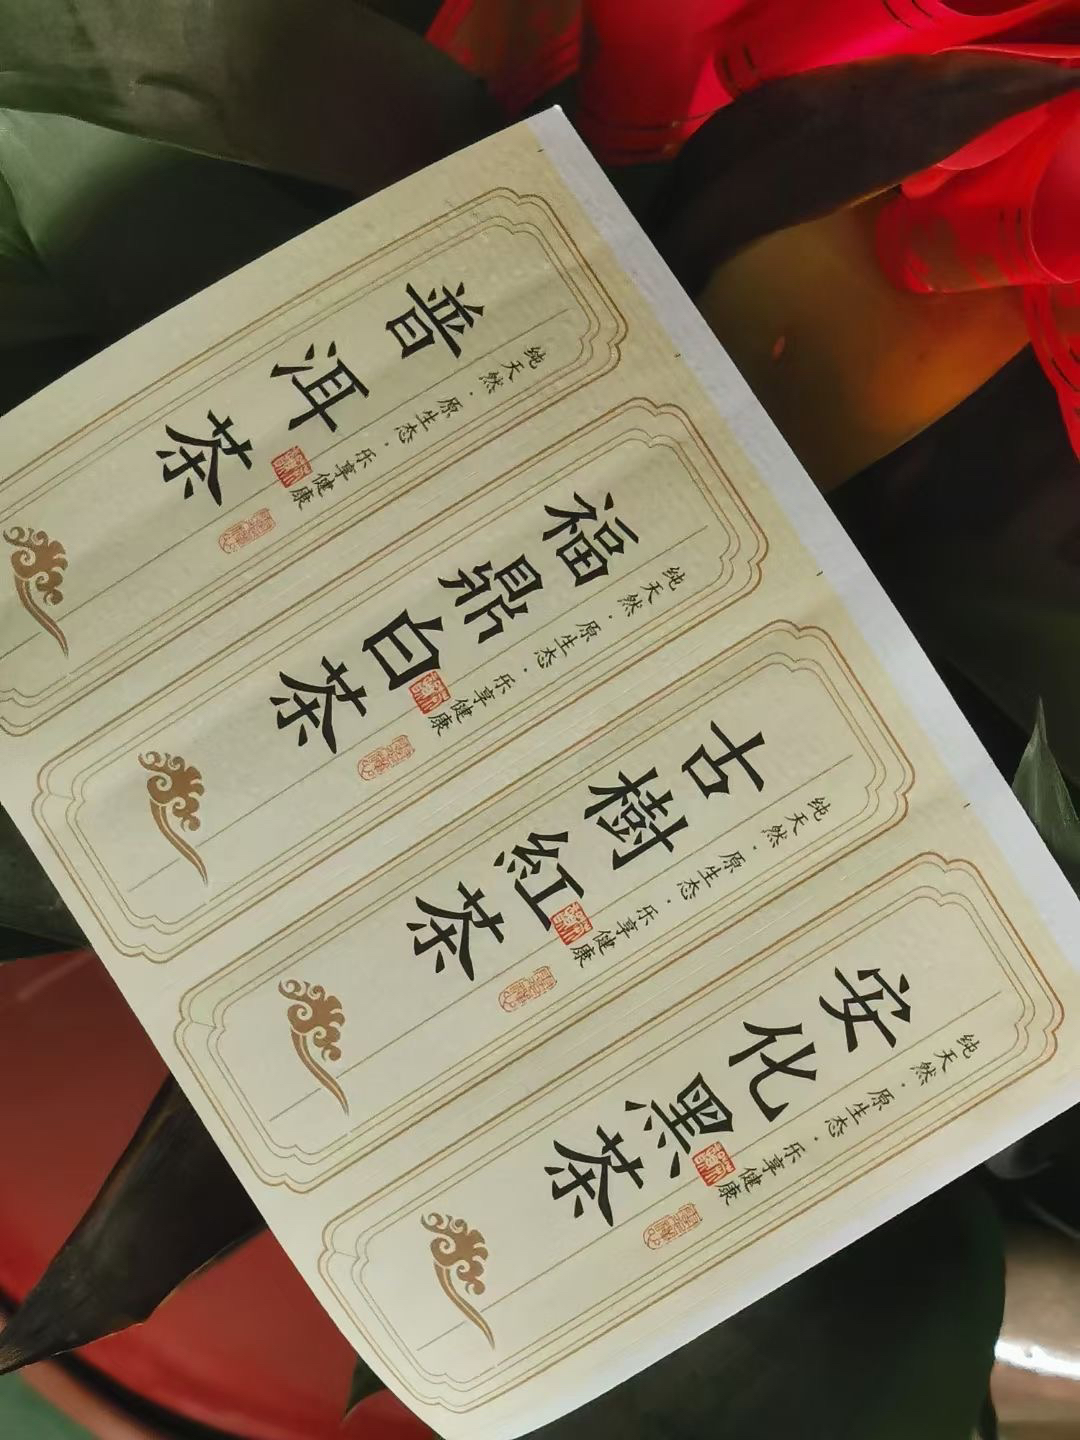 普洱茶
纯天然·原生态·乐享健康
福鼎白茶
纯天然·原生态·乐享健康
古樹紅茶
纯天然·原生态·乐享健康
安化黑茶
纯天然·原生态·乐享健康